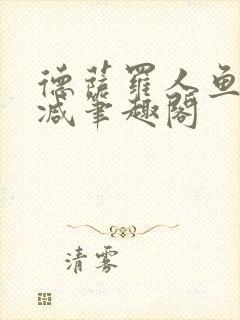 德薩羅人魚
減筆趣閣
清雾